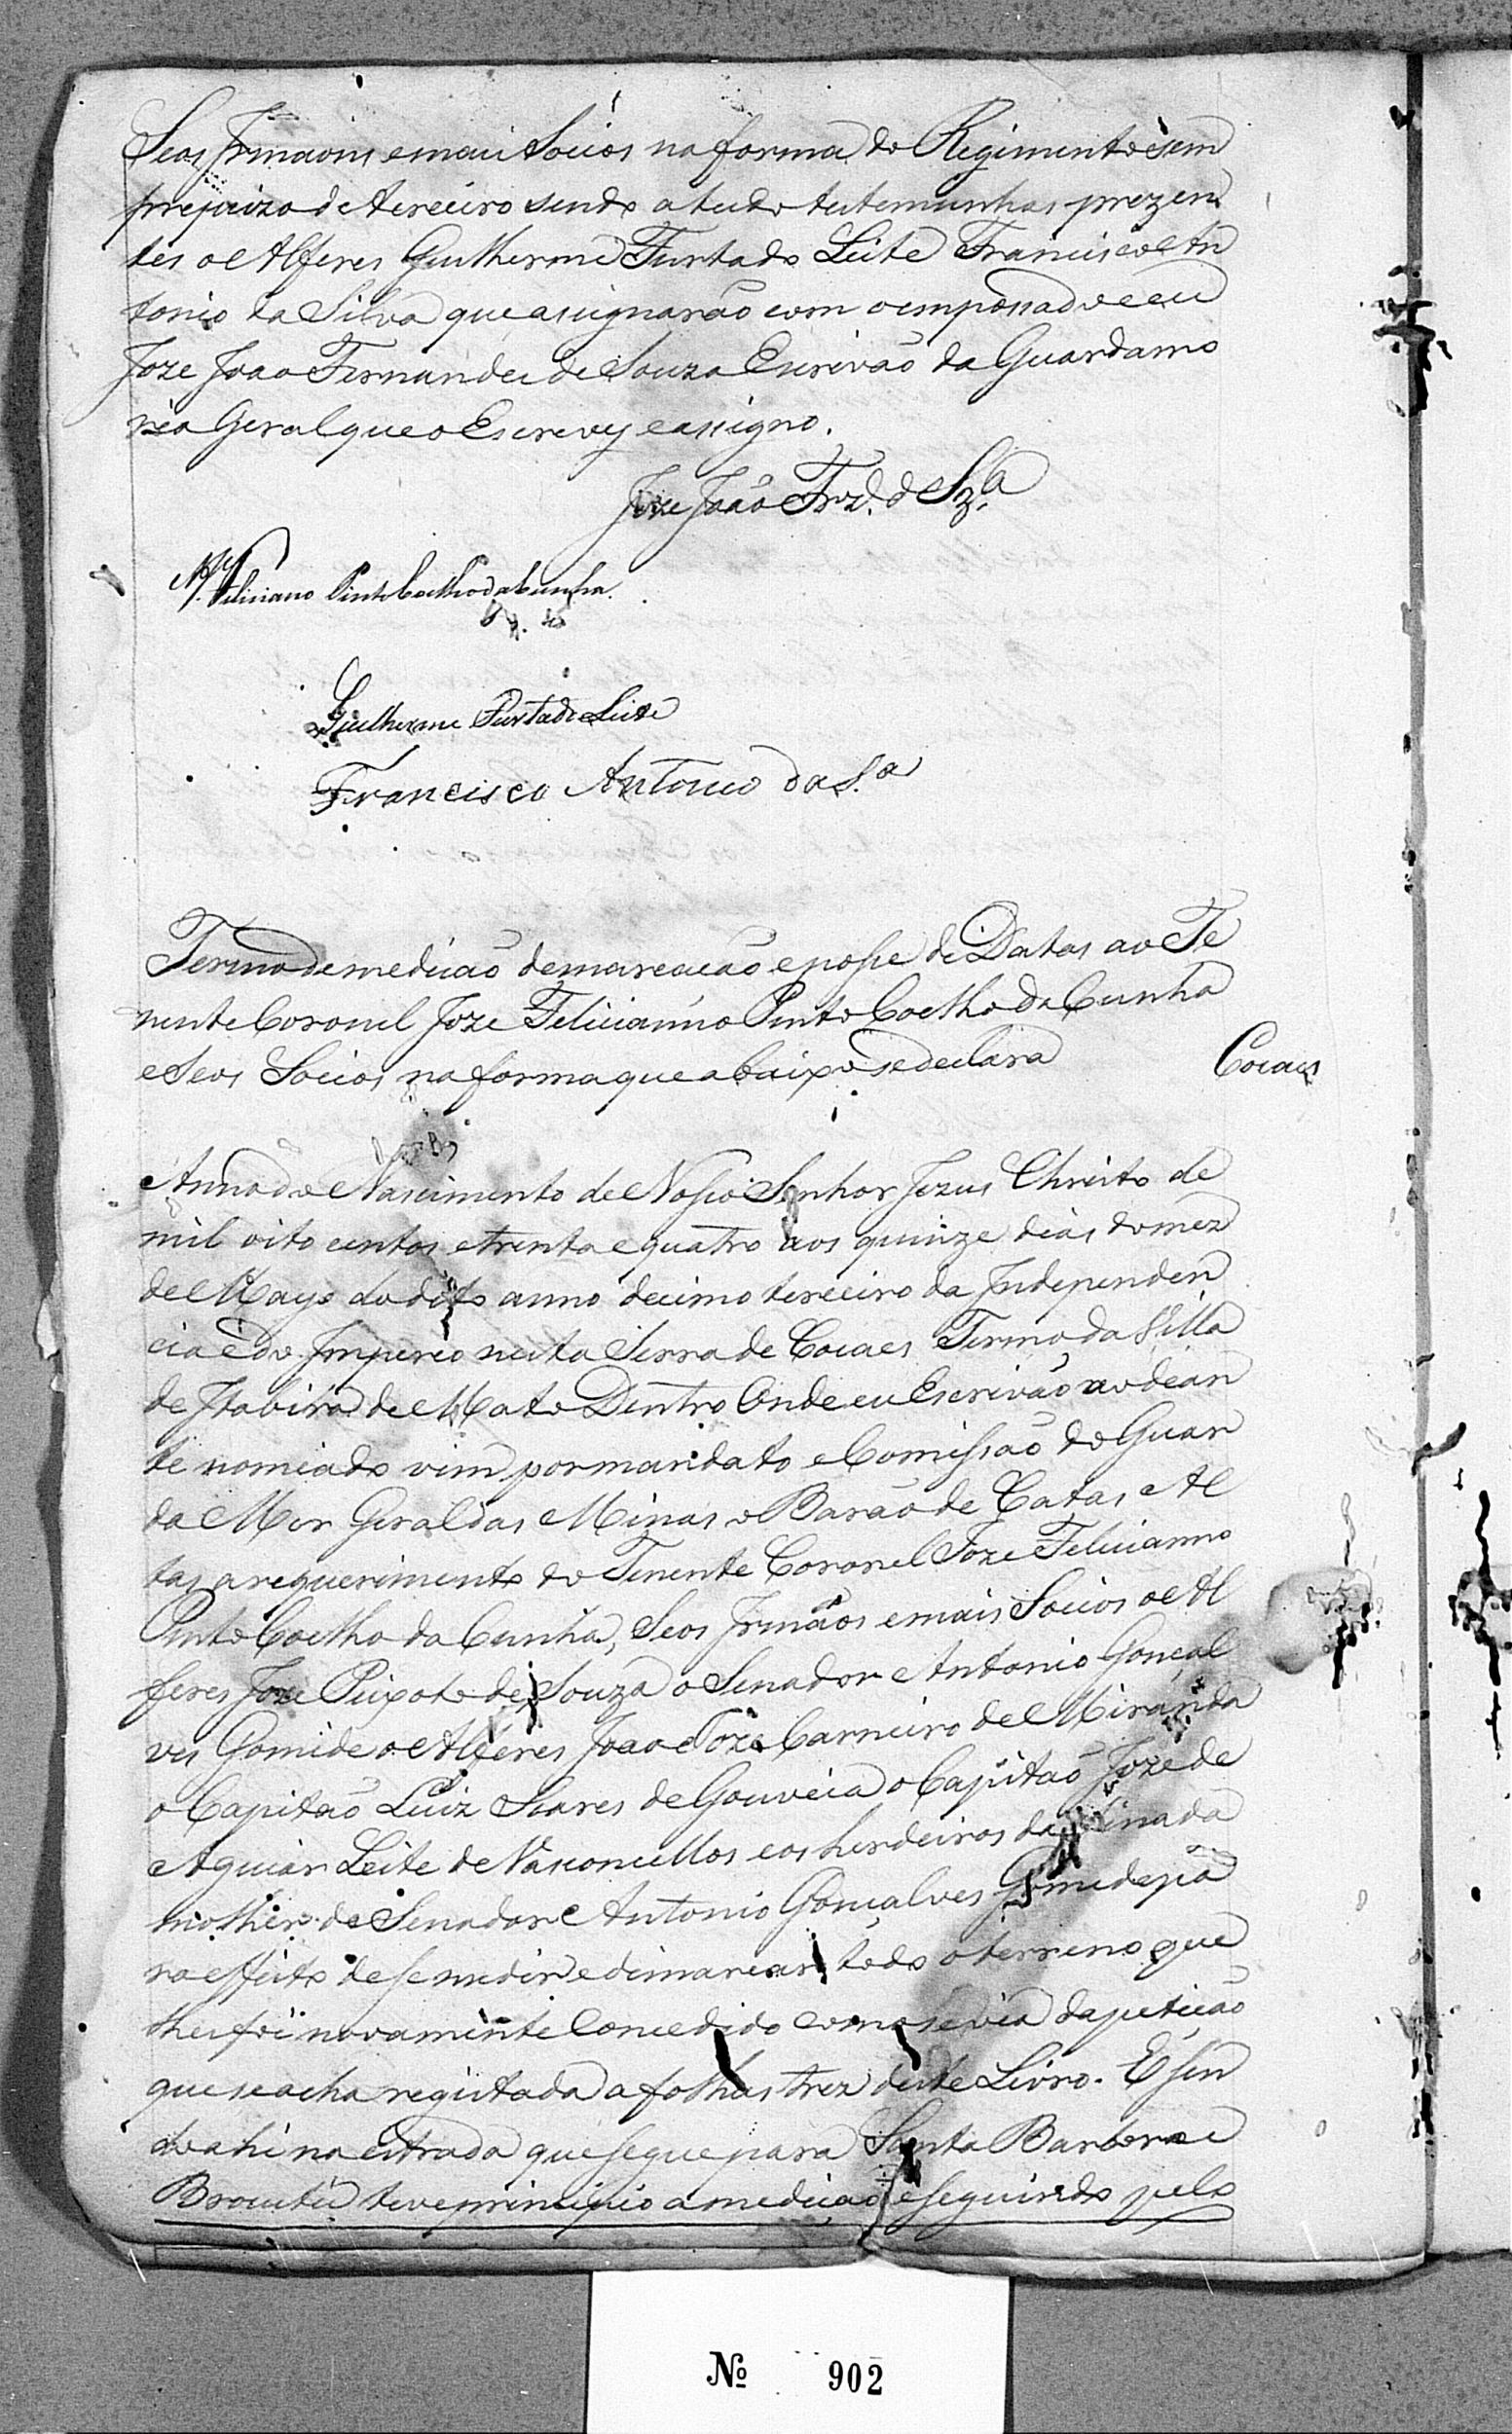 Seos Irmaons e mais Socios na forma do Regimento e sem
prejuizo de terceiro sendo a tudo testemunhas prezen
tes o Alferes Guilherme Furtado Leite Francisco An
tonio da Silva que assignarão com o empossado e eu
Joze Joao Fernandes de Souza Escrivão da Guardamo
ria Geral que o Escrevy e assigno.
Joze João Frz. d Sz.a
Feliciano Pinto Coelho da Cunha.
Guilherme Furtado Leite
Francisco Antonio da S.a
Termo de medição demarcacão e posse de Datas ao Te
nente Coronel Joze Felicianno Pinto Coelho da Cunha
e Seos Socios na forma que abaixo se declara
Cocaes
Anno do Nascimento de Nosso Senhor Jezus Christo de
mil oito centos e trinta e quatro aos quinze dias do mez
de Mayo do dito anno decimo terceiro da Independen
cia e do Imperio nesta Serra de Cocaes Termo da Villa
de Itabira de Mato Dentro Onde eu Escrivão ao dean
te nomiado vim por mandato e Comissão do Guar
da Mor Geral das Minas o Barão de Catas Al
tas a requerimento do Tenente Coronel Joze Felicianno
Pinto Coelho da Cunha, Seos Irmãos e mais Socios o Al
feres Joze Peixoto de Souza o Senador Antonio Goncal
ves Gomide o Alferes Joao Joze Carneiro de Miranda
o Capitão Luiz Soares de Gouveia o Capitão Joze de
Aguiar Leite de Vasconcellos e os herdeiros da finada
molher do Senador Antonio Goncalves Gomide pa
ra effeito de se medir e dimarcar todo o terreno que
lhes foi novamente Concedido como se via da petição
que se acha registada a folhas trez deste Livro. E sen
do ahi na estrada que segue para Santa Barbara e
Brocutú teve principio a medição e seguindo pelo
Nº 902